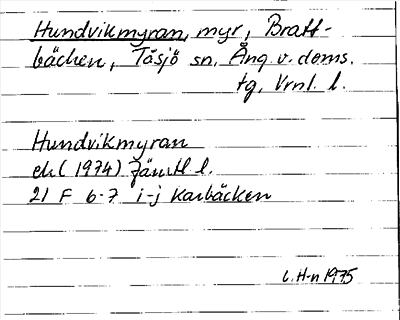 Hundvikmyran, myr, Bratt-
bäcken, Tåsjö sn, Ång. v. doms.
tg, Vrnl. l.
Hundvikmyran
ek (1974) Jämtl. l.
21 F 6-7 i-j Karbäcken
C. H-n 1975